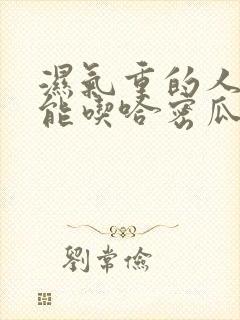 濕氣重的人
能喫哈密瓜
劉常儉